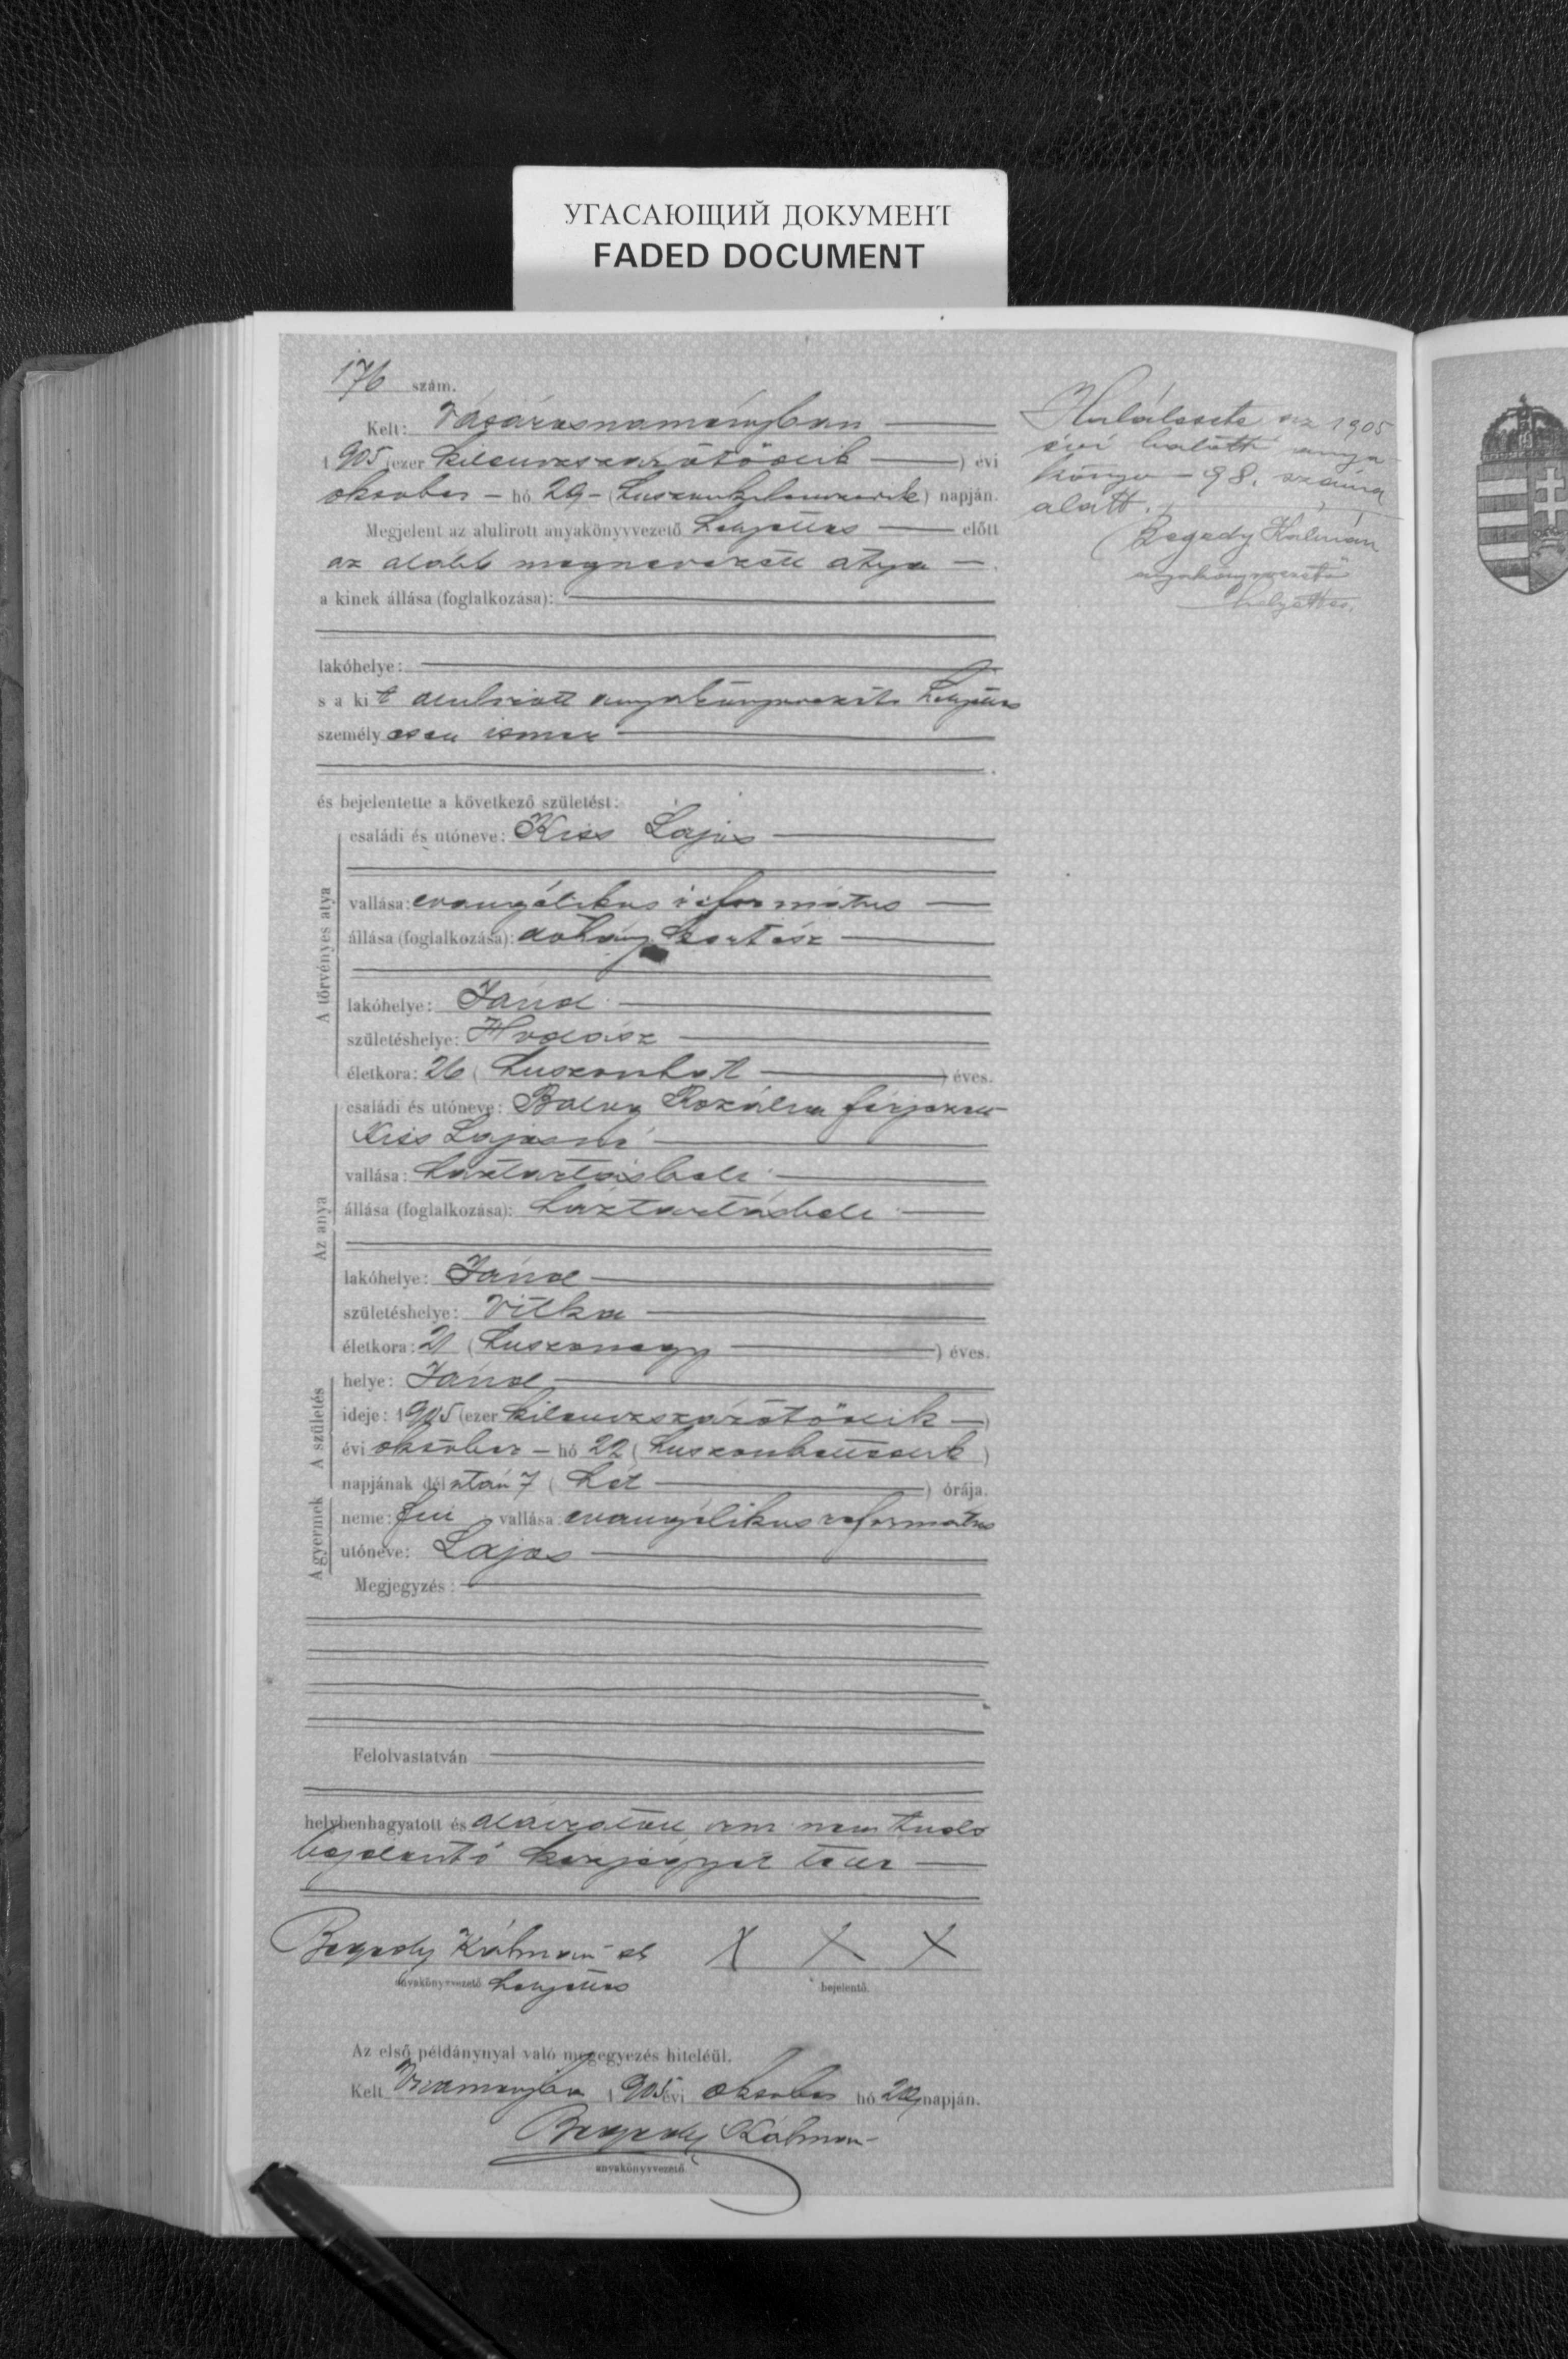 УГАСАЮЩИЙ ДОКУМЕНТ
FADED DOCUMENT
176 szám.
Kelt: Vásárosnaményban
1905 (ezer kilenczszázötödik) évi
október hó 29 (huszonkilenczedik) napján.
Megjelent az alulirott anyakönyvvezető helyettes előtt
az alább megnevezett atya
a kinek állása (foglalkozása):
lakóhelye:
s a kit alulirott anyakönyvvezető helyettes
személyesen ismer
és bejelentette a következő születést:
A törvényes atya
családi és utóneve: Kiss Lajos
vallása: evangélikus református
állása (foglalkozása): dohány kertész
lakóhelye: Jánd
születéshelye: Hodász
életkora: 26 (huszonhat) éves.
Az anya
családi és utóneve: Rozália férjezett
Kiss Lajosné
vallása: háztartásbeli
állása (foglalkozása): háztartásbeli
lakóhelye: Jánd
születéshelye: Vitka
életkora: 21 (huszonegy) éves.
A születés
helye: Jánd
ideje: 1905 (ezer kilenczszázötödik)
évi október hó 22 (huszonkettedik)
napjának délután 7 (hét) órája.
A gyermek
neme: fiu vallása: evangélikus református
utóneve: Lajos
Megjegyzés:
Felolvastatván
helybenhagyatott és aláiratott irni nem tudó
bejelentő kézjegyét tette
Bagady Kálmán
anyakönyvvezető helyettes
X X X
bejelentő.
Az első példánynyal való megegyezés hiteléül.
Kelt 1905 évi október hó 29 napján.
Bagady Kálmán
anyakönyvvezető
Halálesete az 1905
évi halotti anya
könyv 98. száma
alatt.
Bagady Kálmán
anyakönyvvezető
helyettes.